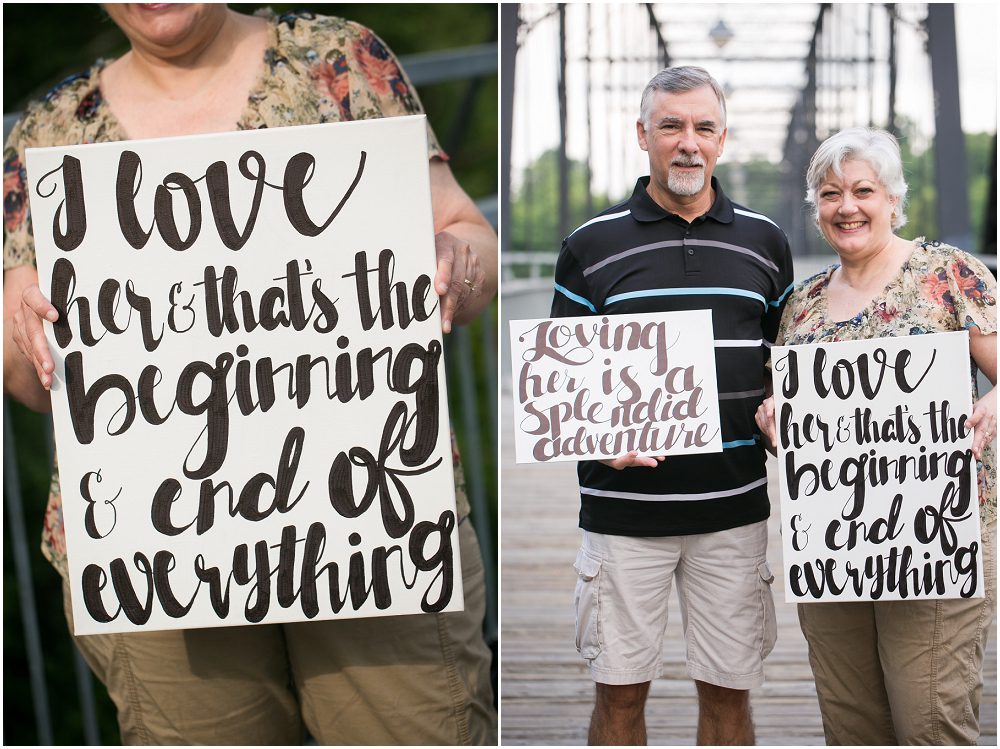 I love
her & that's the
beginning
& end of
everything
Loving
her is a
splendid
adventure
I love
her & that's the
beginning
& end of
everything